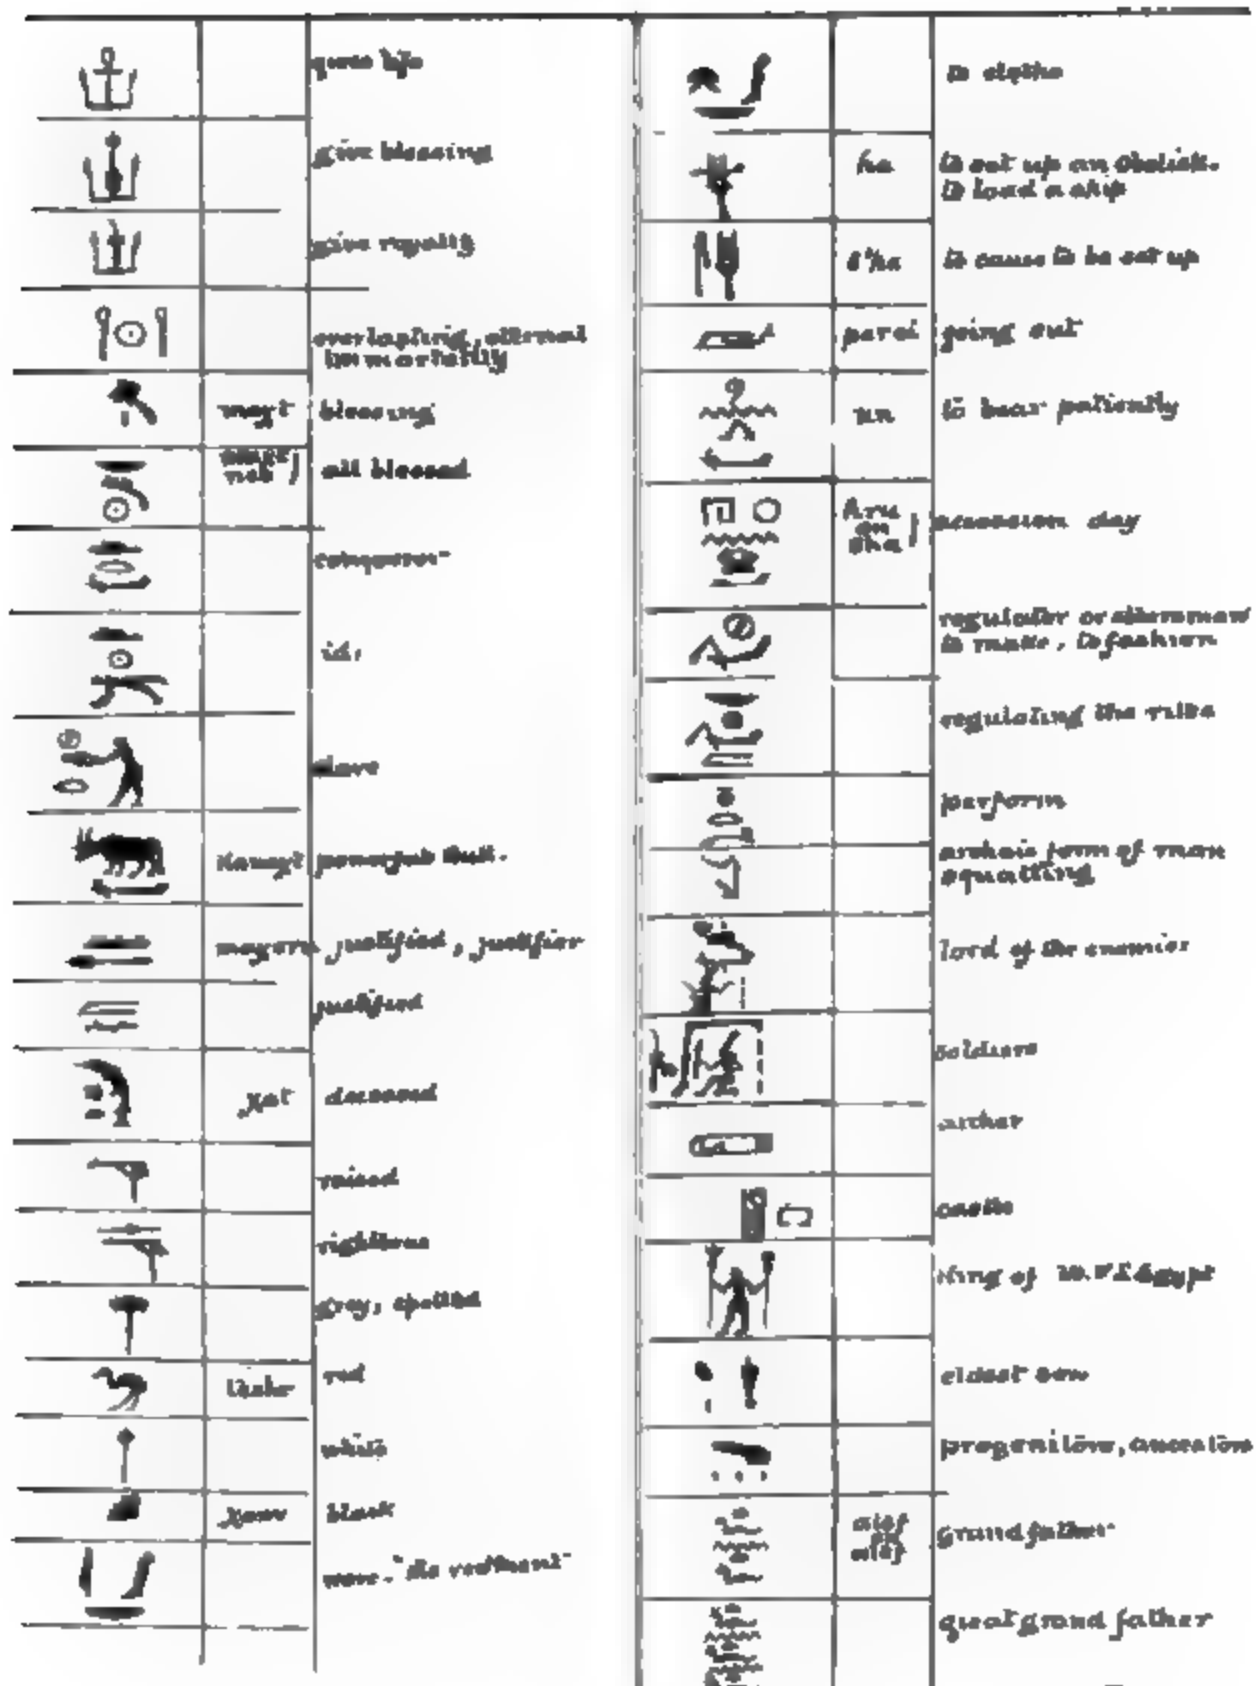 give life
give blessing
give royalty
everlasting, eternal
immortality
blessing
neb
all blessed
conqueror
id.
slave
powerful Bull.
justified, justifier
justified
deceased
raised
righteous
grey, spotted
red
white
black
to clothe
ha to set up an Obelisk.
to load a ship
s'ha to cause to be set up
going out
un to bear patiently
hru
en
sha
accession day
regulator or
to make, to fashion
regulating the rites
perform
archaic form of man
squatting
lord of the enemies
soldiers
archer
castle
King of Egypt
eldest son
progenitors, ancestors
atef
en
atef
grandfather
great grand father